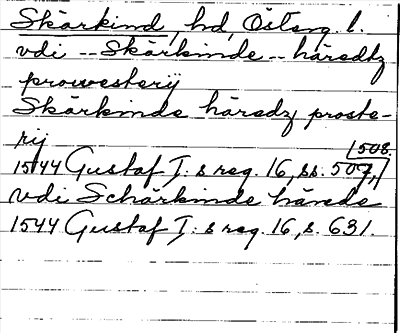 Skärkind, hd, Österg. l.
vdi -- Skärkinde -- häredtz
prowesterij
Skärkinde häredz proste-
rij
1508.
1544 Gustaf I:s reg. 16, ss. 507,
vdi Schärkinde härede
1544 Gustaf I:s reg. 16, s. 631.